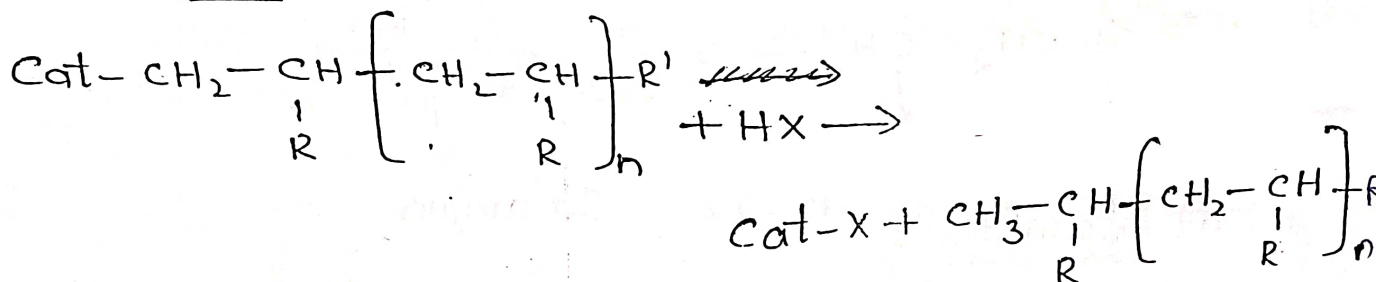 Cat – CH₂ – CH [ CH₂ – CH ]ₙ R'
R R
+ HX →
Cat – X + CH₃ – CH [ CH₂ – CH ]ₙ
R R